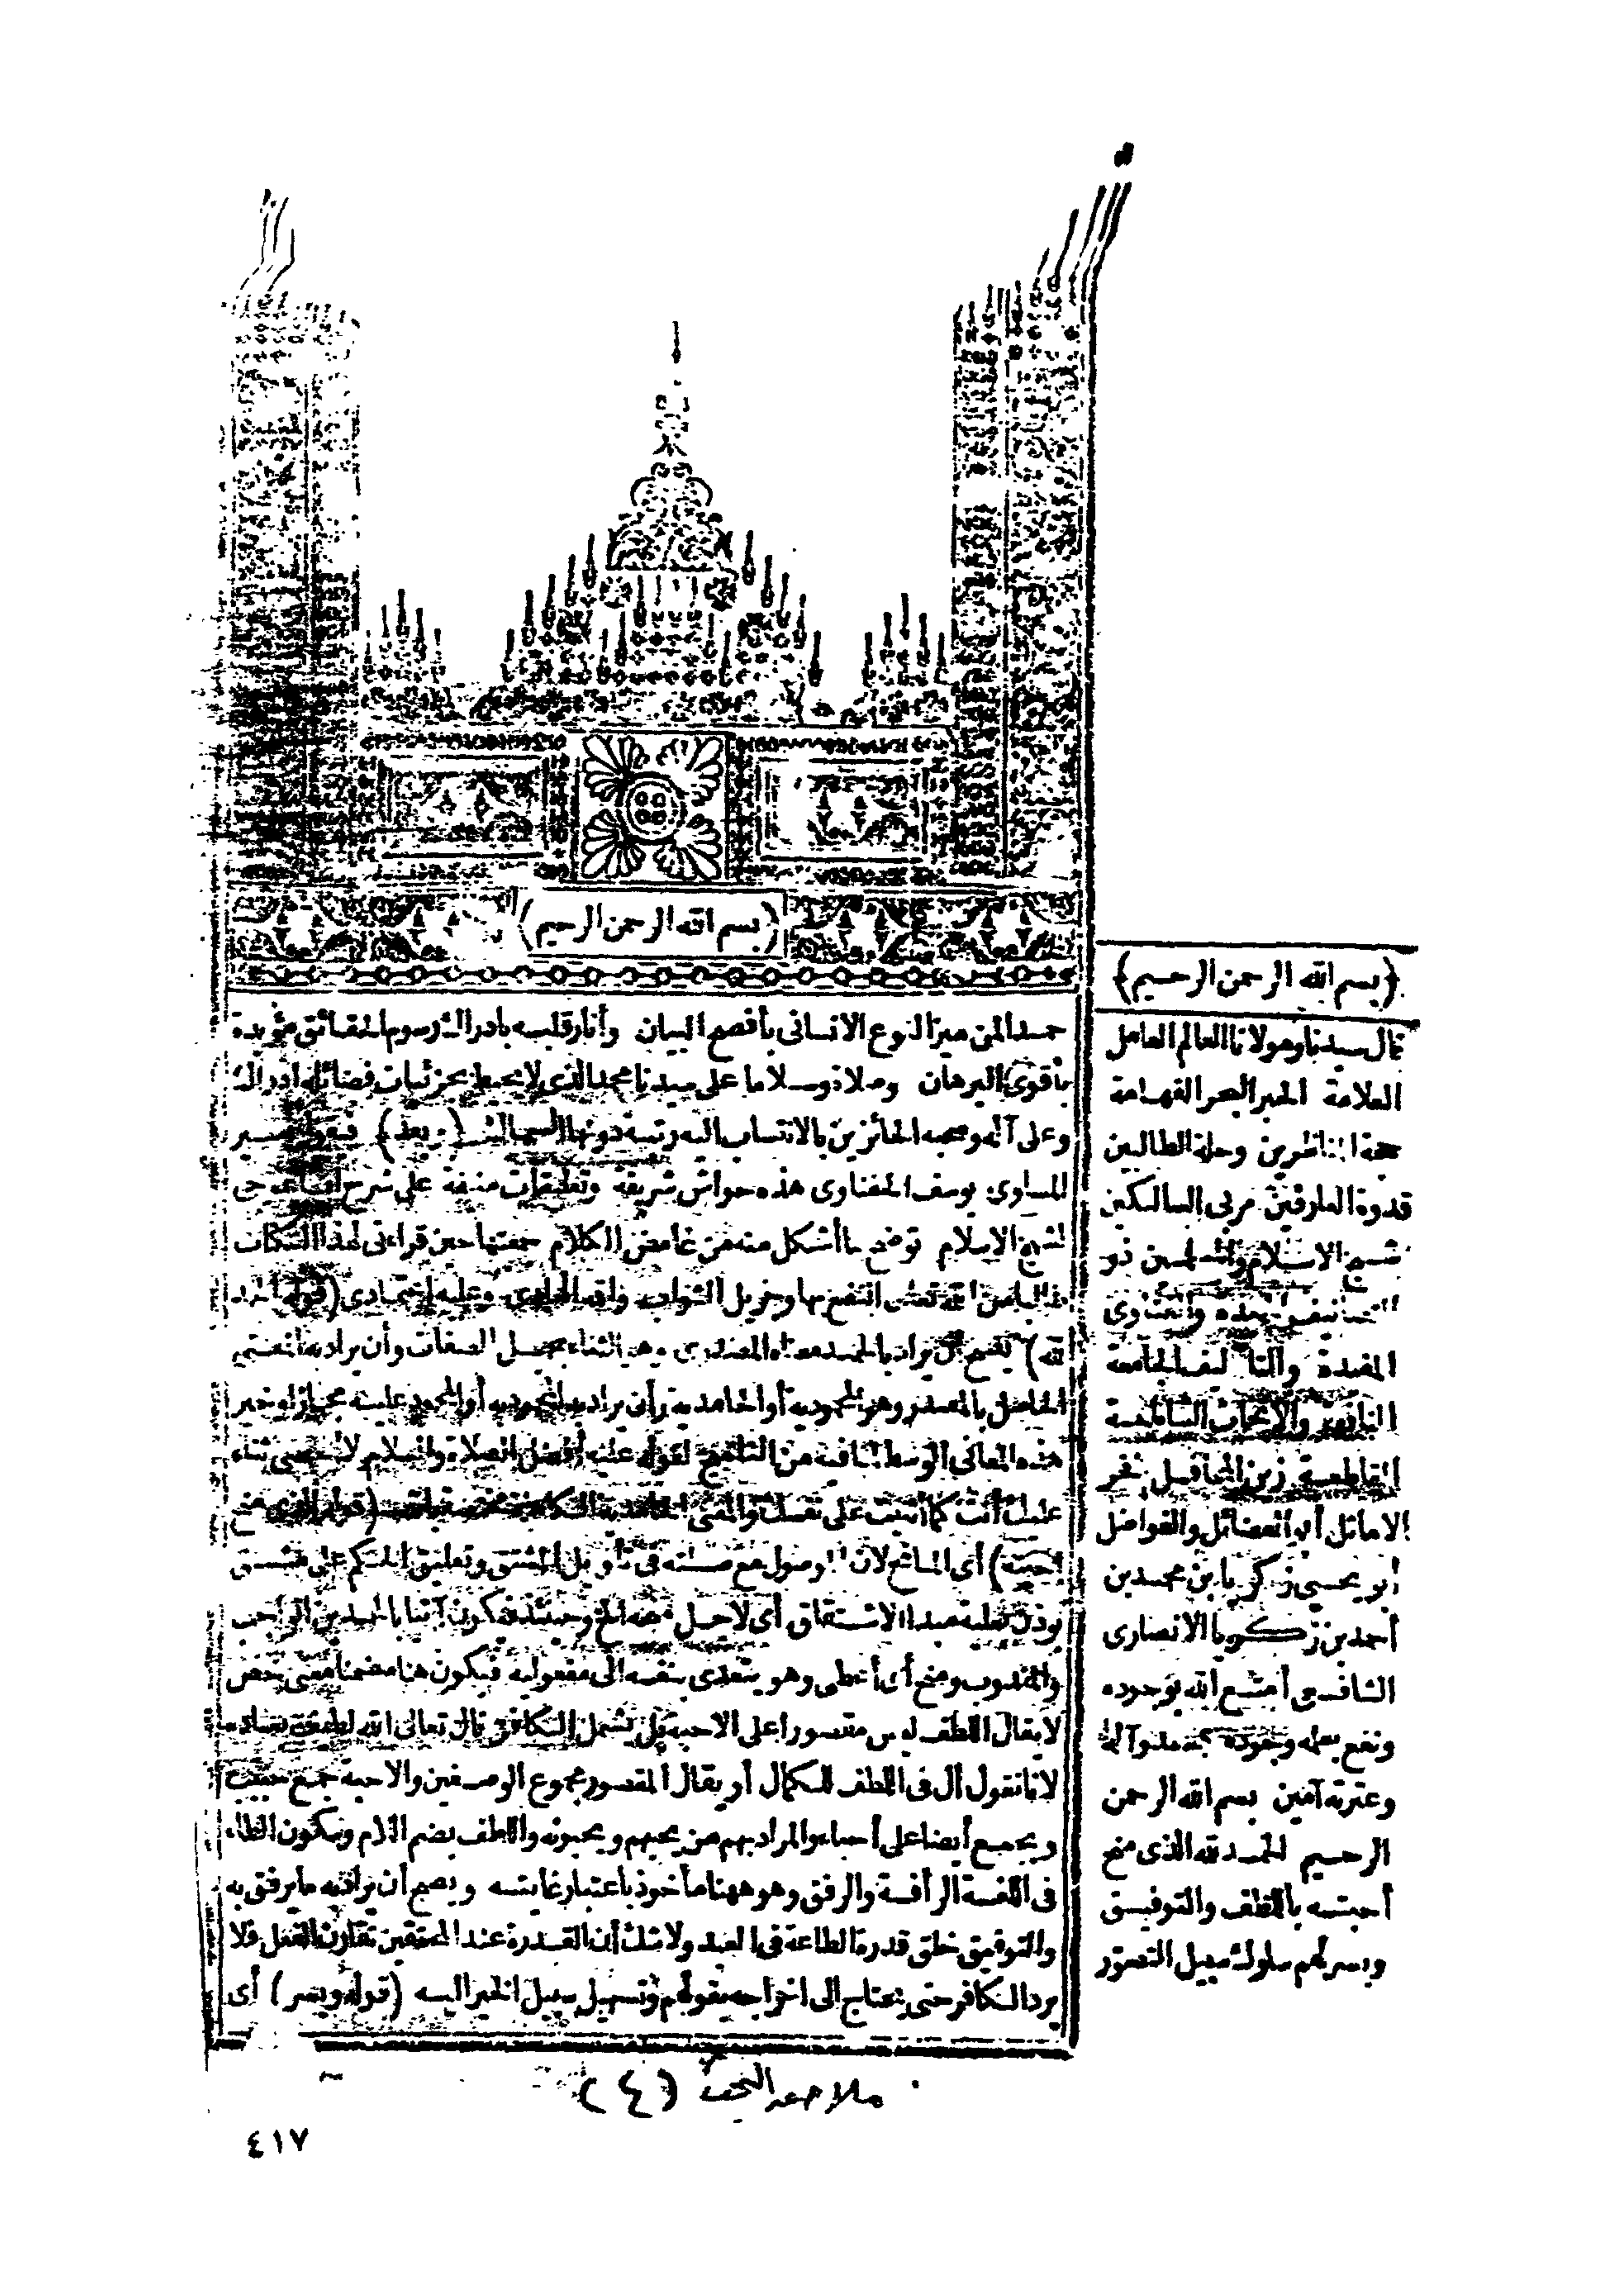 (بسم الله الرحمن الرحيم)
حمدا لمن ميز النوع الانسانى بأفصح البيان وأنار قلبه بادراك رسوم الحقائق مؤيدة
بأقوى البرهان وصلاة وسلاما على سيدنا محمد الذى لا يحيط بجزئيات فضائله ادراك
وعلى آله وصحبه الحائزين بالانتساب اليه رتبة دونها السماك (وبعد) فيقول
يوسف الحفناوى هذه حواش شريفة وتعليقات منيفة على شرح
لشيخ الاسلام توضح ما أشكل منه من غامض الكلام جمعتها حين قراءتى لهذا الكتاب
من الله تعالى النفع بها وجزيل الثواب وعليه اعتمادى (قوله الحمد
لله) يصح أن يراد بالحمد معناه المصدرى وهو الثناء بجميل الصفات وأن يراد به
الحاصل بالمصدر وهو المحمودية أو الحامدية وأن يراد به المحمود به أو المحمود عليه مجازا وخير
هذه المعانى الوسط لقوله عليه أفضل الصلاة والسلام لا أحصى ثناء
عليك أنت كما أثنيت على نفسك (قوله الذى منح
أحبته) أى المانح لان الموصول مع صلته فى تأويل المشتق وتعليق الحكم على مشتق
يؤذن بعلية مبدا الاشتقاق أى لاجل منحه الخ وحينئذ فيكون آتيا بالحمدين الواجب
والمندوب ومنح أى أعطى وهو يتعدى بنفسه الى مفعوليه فيكون هنا مضمنا معنى خص
لا يقال اللطف ليس مقصورا على الاحبة بل يشمل الكافر قال تعالى الله لطيف بعباده
لانا نقول أل فى اللطف للكمال أو يقال المقصور مجموع الوصفين والاحبة جمع حبيب
ويجمع أيضا على أحباء والمراد بهم من يحبهم ويحبونه واللطف بضم اللام وسكون الطاء
فى اللغة الرأفة والرفق وهو ههنا مأخوذ باعتبار غايته ويصح أن يراد به ما يرفق به
والتوفيق خلق قدرة الطاعة فى العبد ولا شك أن القدرة عند المحققين تقارن الفعل فلا
يرد الكافر حتى يحتاج الى اخراجه بقولهم وتسهيل سبيل الخير اليه (قوله ويسر) أى
{بسم الله الرحمن الرحيم}
قال سيدنا ومولانا العالم العامل
العلامة الحبر البحر الفهامة
حجة المناظرين وحلة الطالبين
قدوة العارفين مربى السالكين
شيخ الاسلام والمسلمين ذو
التصانيف والفتاوى
المفيدة والتآليف الجامعة
النافعة والابحاث الساطعة
القاطعة زين المحافل فخر
الاماثل أبو الفضائل والفواضل
أبو يحيى زكريا بن محمد بن
أحمد بن زكريا الانصارى
الشافعى أمتع الله بوجوده
ونفع بعلمه وجوده بمحمد وآله
وعترته آمين بسم الله الرحمن
الرحيم الحمد لله الذى منح
أحبته باللطف والتوفيق
ويسر لهم سلوك سبيل التصور
(٤)
٤١٧